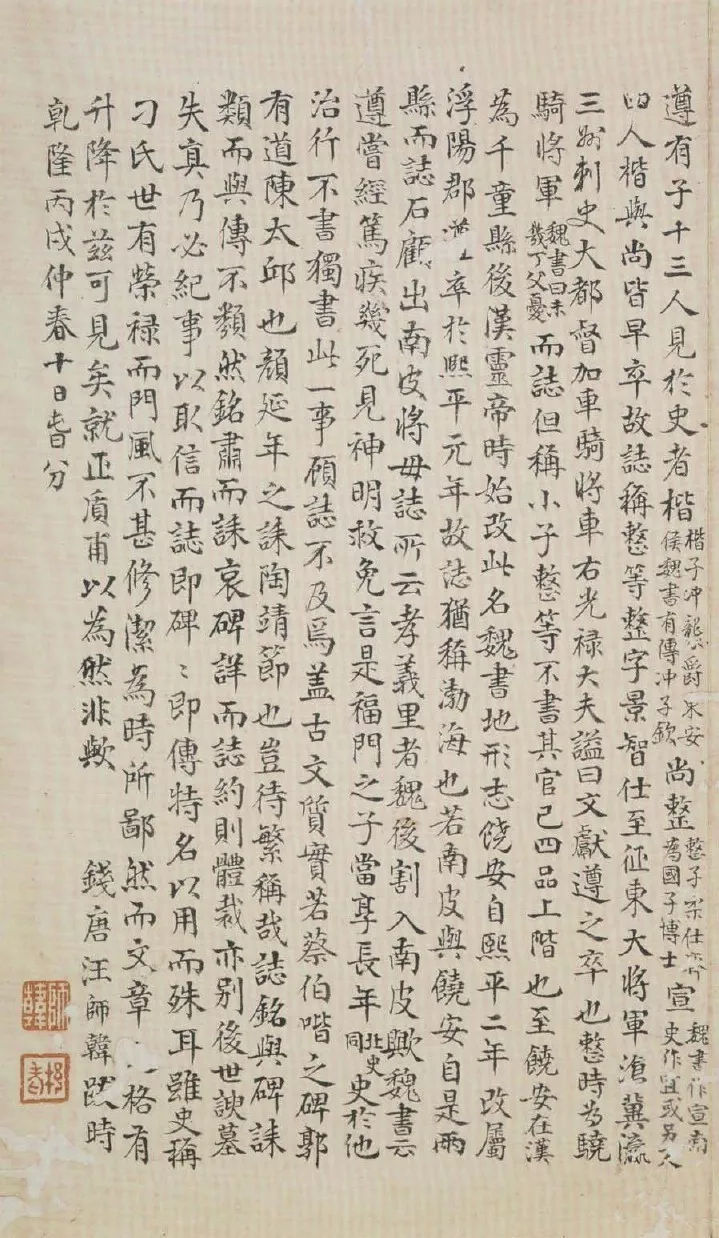 遵有子十三人見於史者楷楷子沖襲爵永安侯魏書有傳沖子欽尚整整子柔仕齊為國子博士宣魏書作宣南史作宜或另又
人楷與尚皆早卒故誌稱整等整字景智仕至征東大將軍滄冀瀛
三州刺史大都督加車騎將車右光祿大夫謚曰文獻遵之卒也整時為驍
騎將軍魏書曰未幾丁父憂而誌但稱小子整等不書其官已四品上階也至饒安在漢
為千童縣後漢靈帝時始改此名魏書地形志饒安自熙平二年改屬
浮陽郡遵卒於熙平元年故誌猶稱渤海也若南皮與饒安自是兩
縣而誌石顧出南皮將毋誌所云孝義里者魏後割入南皮歟魏書云
遵嘗經篤疾幾死見神明救免言是福門之子當享長年北史同史於他
治行不書獨書此一事碩誌不及焉蓋古文質實若蔡伯喈之碑郭
有道陳太邱也顏延年之誄陶靖節也豈待繁稱哉誌銘與碑誄
類而與傳不類然銘肅而誄哀碑詳而誌約則體裁亦別後世諛墓
失真乃必紀事以取信而誌即碑〻即傳特名以用而殊耳雖史稱
刁氏世有榮祿而門風不甚修潔為時所鄙然而文章格有
升降於茲可見矣就正貭甫以為然非歟 錢唐汪師韓跋時
乾隆丙戌仲春十日春分
師韓